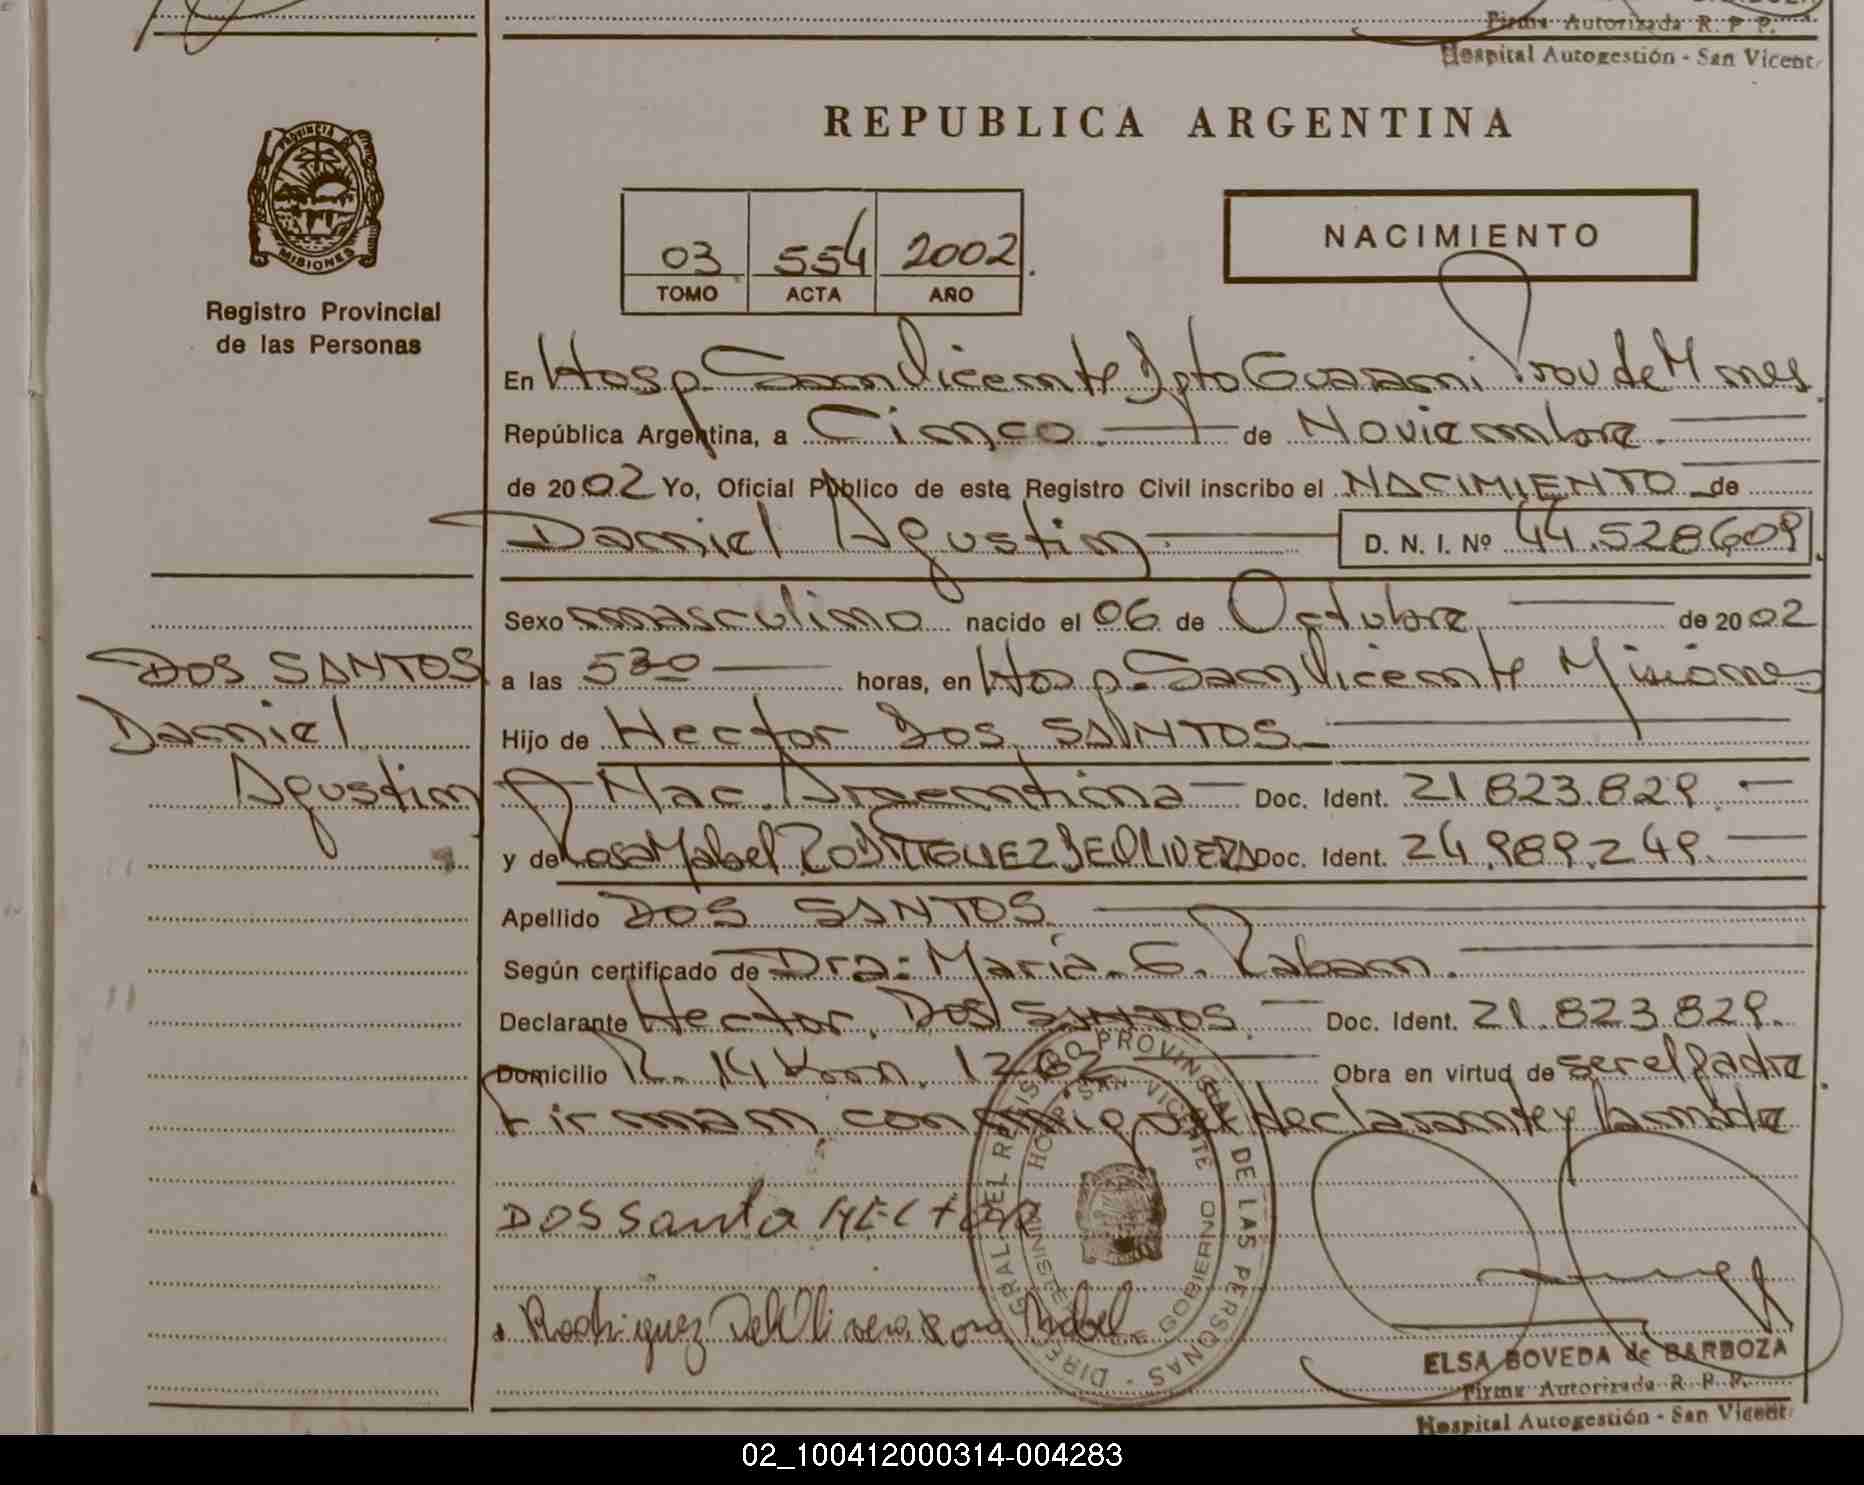 Firma Autorizada R. P. P.
Hospital Autogestión - San Vicent
REPUBLICA ARGENTINA
PROVINCIA
MISIONES
Registro Provincial
de las Personas
03 554 2002
TOMO ACTA AÑO
NACIMIENTO
En Hosp. San Vicente Dpto Guarani Prov de Mnes
República Argentina, a Cinco de Noviembre
de 2002 Yo, Oficial Público de este Registro Civil inscribo el NACIMIENTO de
Daniel Agustin D. N. I. Nº 44.528609
Sexo masculino nacido el 06 de Octubre de 2002
DOS SANTOS
Daniel
Agustin
a las 530 horas, en Hosp. San Vicente Misiones
Hijo de Hector Dos SANTOS
Nac. Argentina Doc. Ident. 21.823.829
y de Rosa Mabel RODRIGUEZ DE OLIVERA Doc. Ident. 24.989.249
Apellido DOS SANTOS
Según certificado de Dra: Maria. G. Raban.
Declarante Hector Dos SANTOS Doc. Ident. 21.823.829.
Domicilio R. 14 Km. 1262 Obra en virtud de ser el padre
Firman conmigo el declarante y la madre
DOS Santo HECTOR
Rodriguez De Olivera Rosa Mabel
DIREC. GRAL. DEL REGISTRO PROVINCIAL DE LAS PERSONAS
HOSP. SAN VICENTE
DE GOBIERNO
ELSA BOVEDA de BARBOZA
Firma Autorizada R. P. P.
Hospital Autogestión - San Vicent
02_100412000314-004283